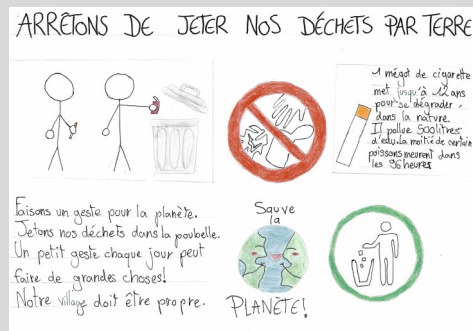 ARRÊTONS DE JETER NOS DÉCHETS PAR TERRE
1 mégot de cigarette
met jusqu'à 12 ans
pour se dégrader
dans la nature.
Il pollue 500 litres
d'eau. La moitié de certain
poissons meurent dans
les 96 heures
Faisons un geste pour la planète.
Jetons nos déchets dans la poubelle.
Un petit geste chaque jour peut
faire de grandes choses!
Notre village doit être propre.
Sauve
la
PLANÈTE!